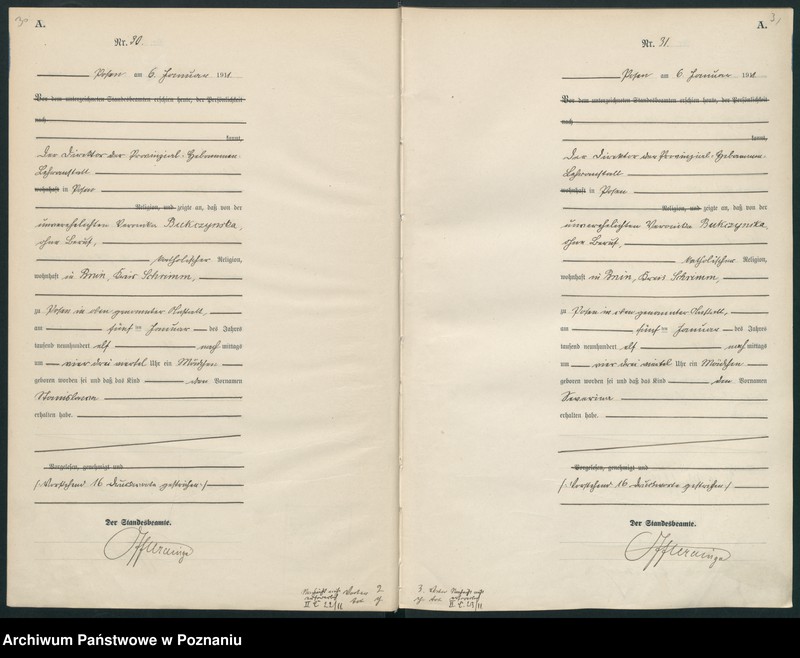 30
A.
Nr. 30.
Posen am 6. Januar 1911
Vor dem unterzeichneten Standesbeamten erschien heute, der Persönlichkeit
nach
kannt,
Der Direktor der Provinzial-Hebammen-
Lehranstalt
wohnhaft in Posen
Religion, und zeigte an, daß von der
unverehelichten Veronika
ohne Beruf,
katholischer Religion,
wohnhaft in Bnin, Kreis Schrimm,
zu Posen in oben genannter Anstalt,
am fünf ten Januar des Jahres
tausend neunhundert elf nach mittags
um vier drei viertel Uhr ein Mädchen
geboren worden sei und daß das Kind den Vornamen
Stanislawa
erhalten habe.
Vorgelesen, genehmigt und
(Vorstehend 16 Druckworte gestrichen.)
Der Standesbeamte.
31
A.
Nr. 31.
Posen am 6. Januar 1911
Vor dem unterzeichneten Standesbeamten erschien heute, der Persönlichkeit
nach
kannt,
Der Direktor der Provinzial-Hebammen-
Lehranstalt
wohnhaft in Posen
Religion, und zeigte an, daß von der
unverehelichten Veronika
ohne Beruf,
katholischer Religion,
wohnhaft in Bnin, Kreis Schrimm,
zu Posen in oben genannter Anstalt,
am fünf ten Januar des Jahres
tausend neunhundert elf nach mittags
um vier drei viertel Uhr ein Mädchen
geboren worden sei und daß das Kind den Vornamen
Severina
erhalten habe.
Vorgelesen, genehmigt und
(Vorstehend 16 Druckworte gestrichen.)
Der Standesbeamte.
Archiwum Państwowe w Poznaniu